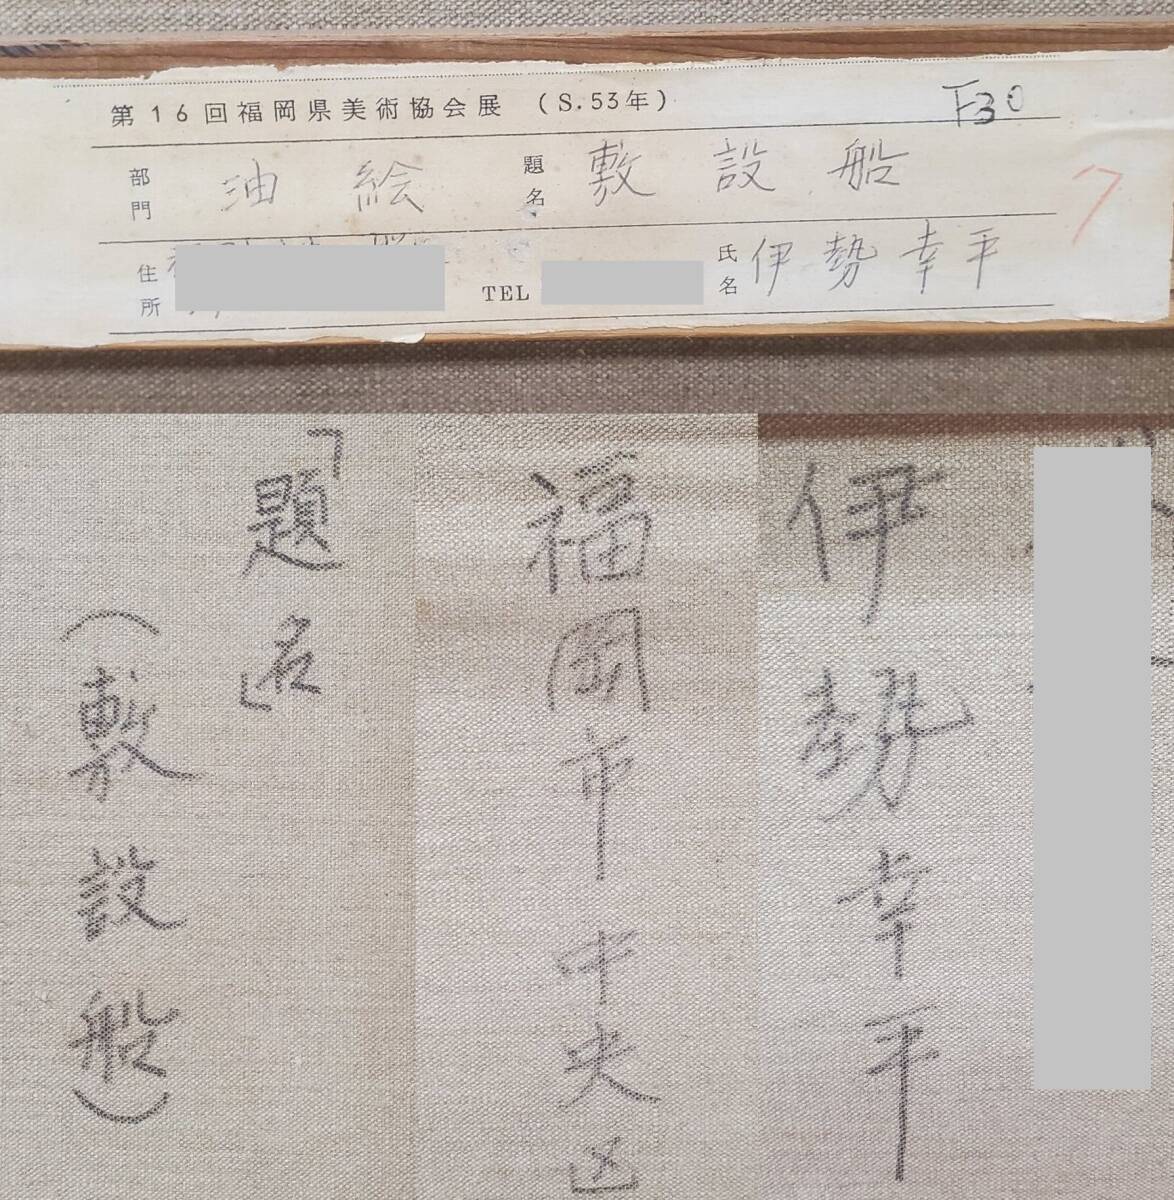 第16回福岡県美術協会展 (S.53年) F30
部門 油絵 題名 敷設船
住所 TEL 氏名 伊勢幸平
「題名」
(敷設船)
福岡市中央区
伊勢幸平